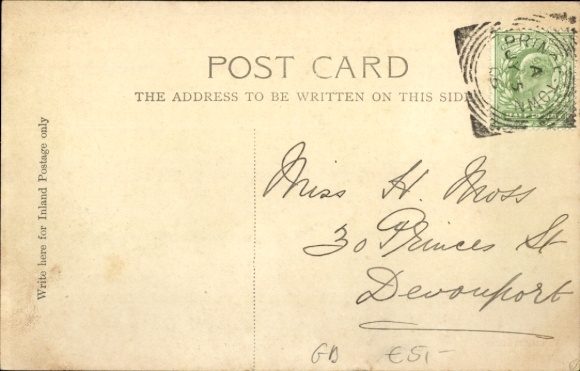 POST CARD
THE ADDRESS TO BE WRITTEN ON THIS SIDE
Write here for Inland Postage only
A
HALFPENNY
Miss H. Moss
30 Princes St
Devonport
GB €5,-